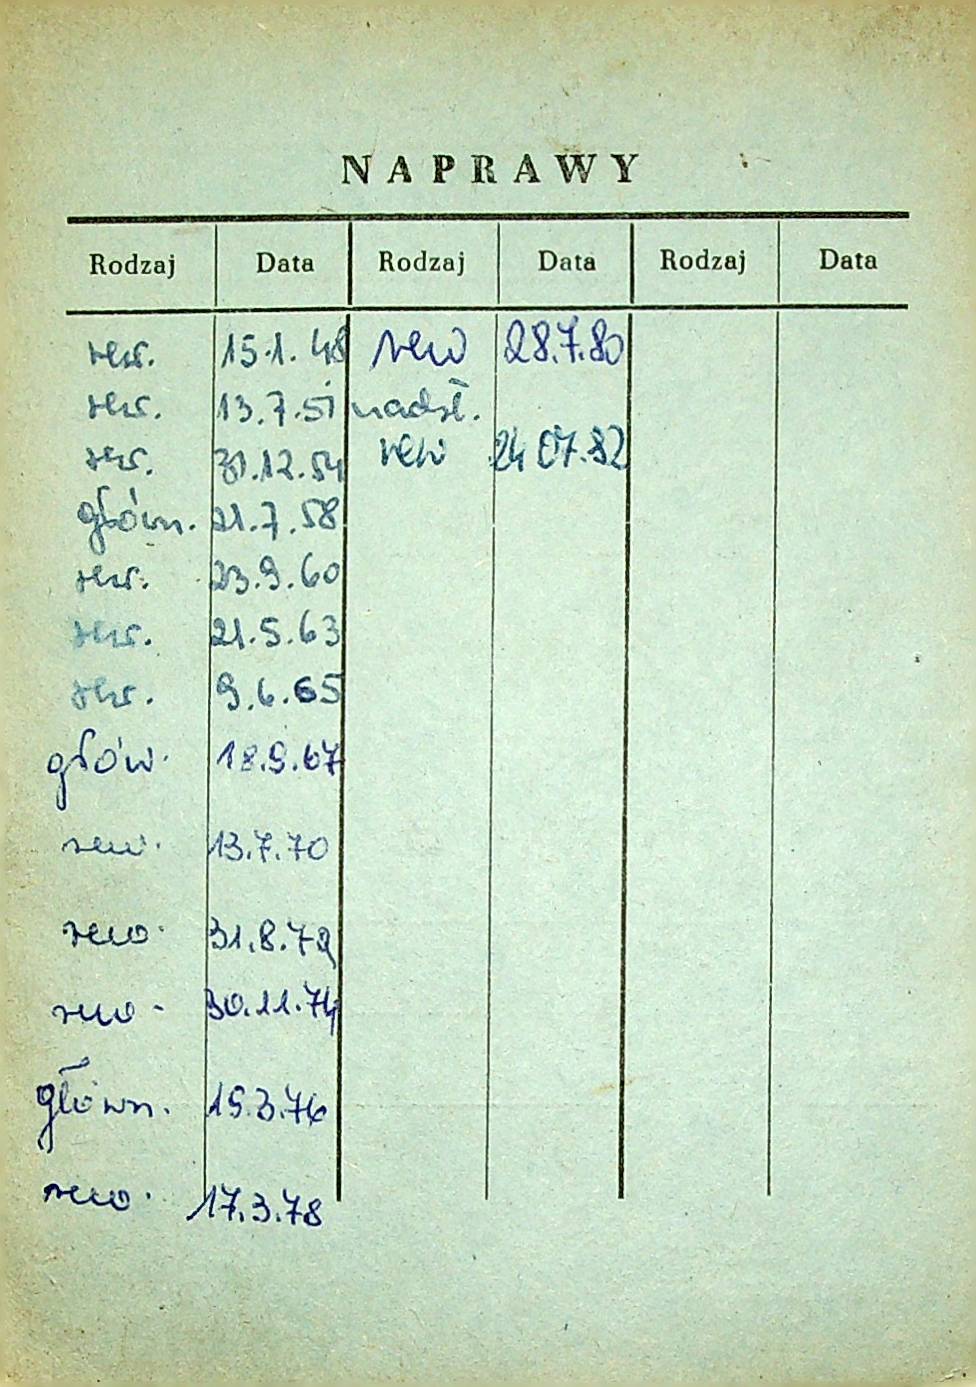 NAPRAWY
Rodzaj Data Rodzaj Data Rodzaj Data
rew. 15.1.48 rew 28.7.80
rew. 13.7.51 nadzł.
rew. 30.12.54 rew 24 07.82
główn. 21.7.58
rew. 23.9.60
rew. 21.5.63
rew. 9.6.65
głów. 18.9.67
rew. 13.7.70
rew. 31.8.72
rew - 30.11.74
główn. 15.3.76
rew. 17.3.78